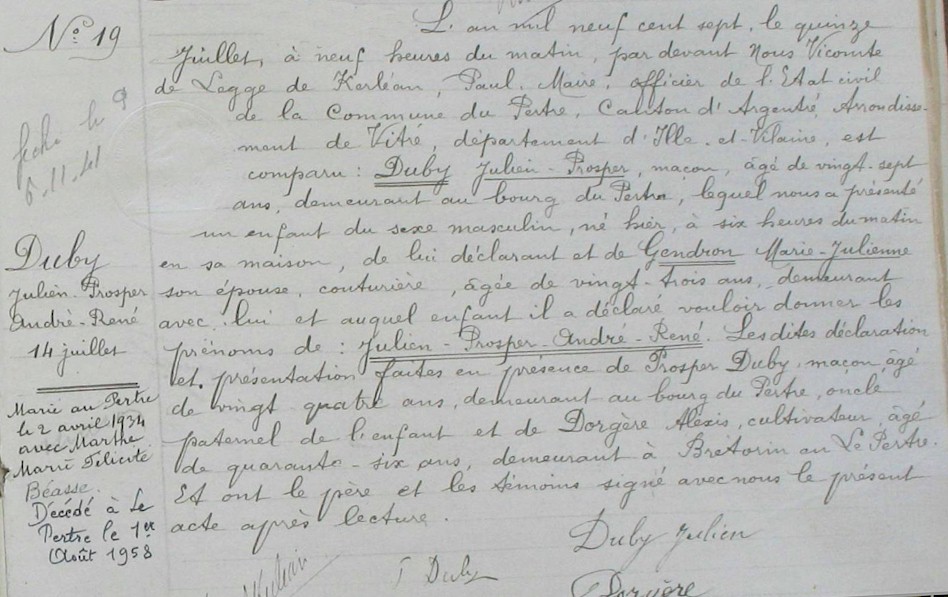 N° 19
fiche le 9
6.11.41
Duby
Julien-Prosper
André-René
14 juillet
Marié au Pertre
le 2 avril 1934
avec Marthe
Marie Félicité
Béasse.
Décédé à Le
Pertre le 1er
Août 1958
L'an mil neuf cent sept, le quinze
Juillet, à neuf heures du matin, par devant Nous Vicomte
de Legge de Kerléan, Paul, Maire, officier de l'Etat civil
de la Commune du Pertre, Canton d'Argentré, Arrondisse-
ment de Vitré, département d'Ille-et-Vilaine, est
comparu : Duby Julien-Prosper, maçon, âgé de vingt-sept
ans, demeurant au bourg du Pertre, lequel nous a présenté
un enfant du sexe masculin, né hier, à six heures du matin
en sa maison, de lui déclarant et de Gendron Marie-Julienne
son épouse, couturière, âgée de vingt-trois ans, demeurant
avec lui et auquel enfant il a déclaré vouloir donner les
prénoms de : Julien-Prosper-André-René. Les dites déclaration
et présentation faites en présence de Prosper Duby, maçon, âgé
de vingt quatre ans, demeurant au bourg du Pertre, oncle
paternel de l'enfant et de Dorgère Alexis, cultivateur, âgé
de quarante-six ans, demeurant à Bretorin au Le Pertre.
Et ont le père et les témoins signé avec nous le présent
acte après lecture.
Duby Julien
Duby
Dorgère